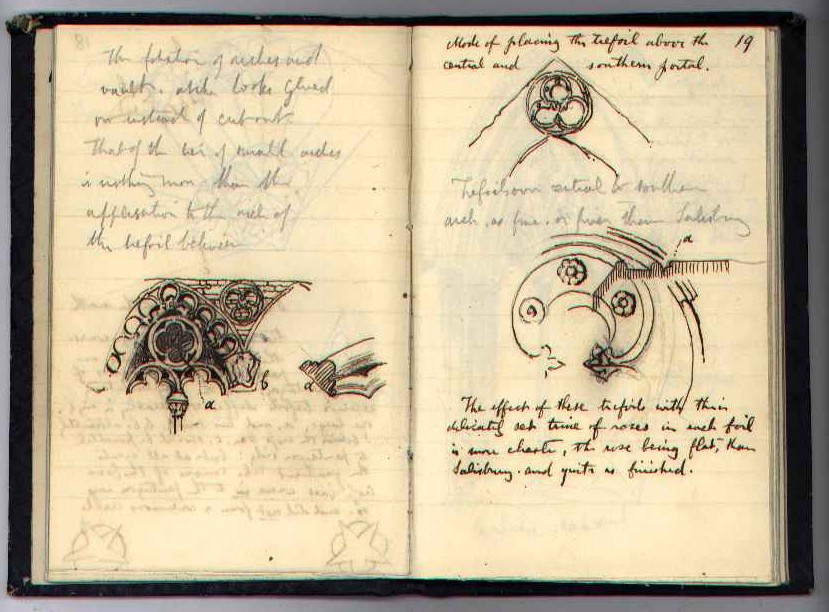 The foliation of arches and
vault. alike looks glued
on instead of cut out.
That of the
arches
is nothing more than the
application to the arch of
the trefoil between
a
b
a
19
Mode of placing the trefoil above the
central and southern portal.
Trefoils over central & southern
arch. as fine. or finer than Salisbury
a
The effect of these trefoils with their
delicately set trine of roses in each foil
is more chaste, the rose being flat, than
Salisbury. and quite as finished.